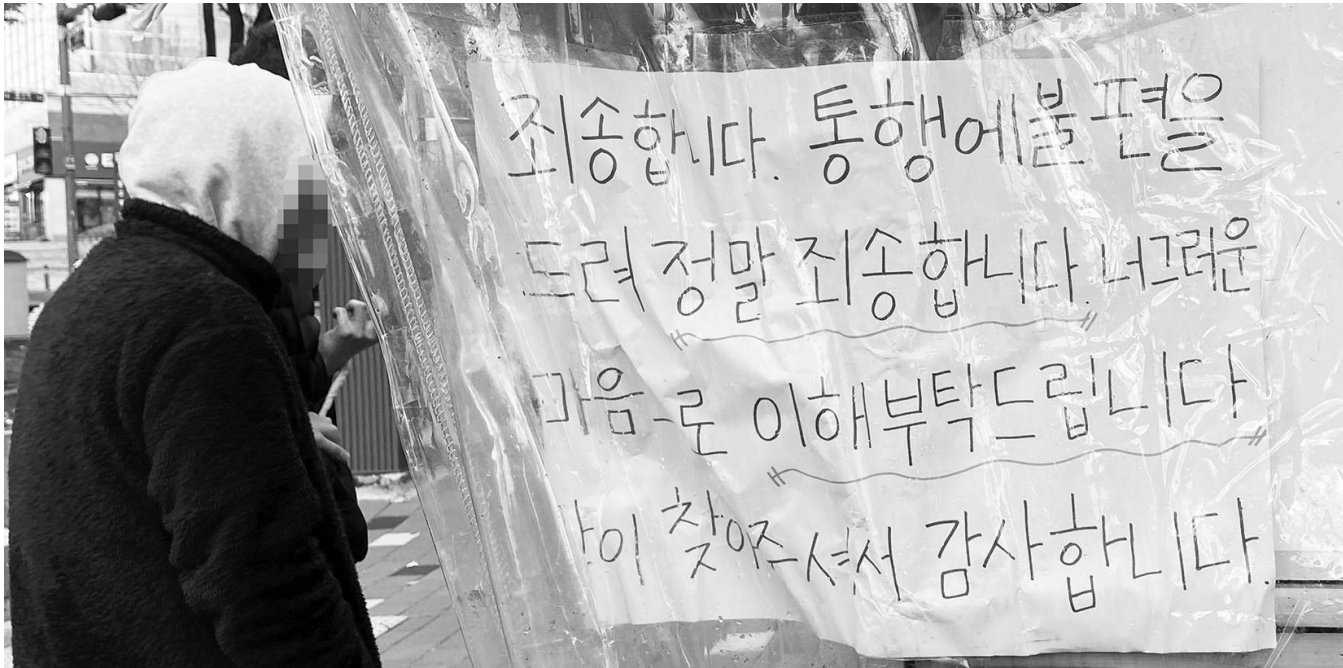 죄송합니다. 통행에불편을
드려 정말 죄송합니다. 너그러운
마음-로 이해부탁드립니다
찾아주셔서 감사합니다.